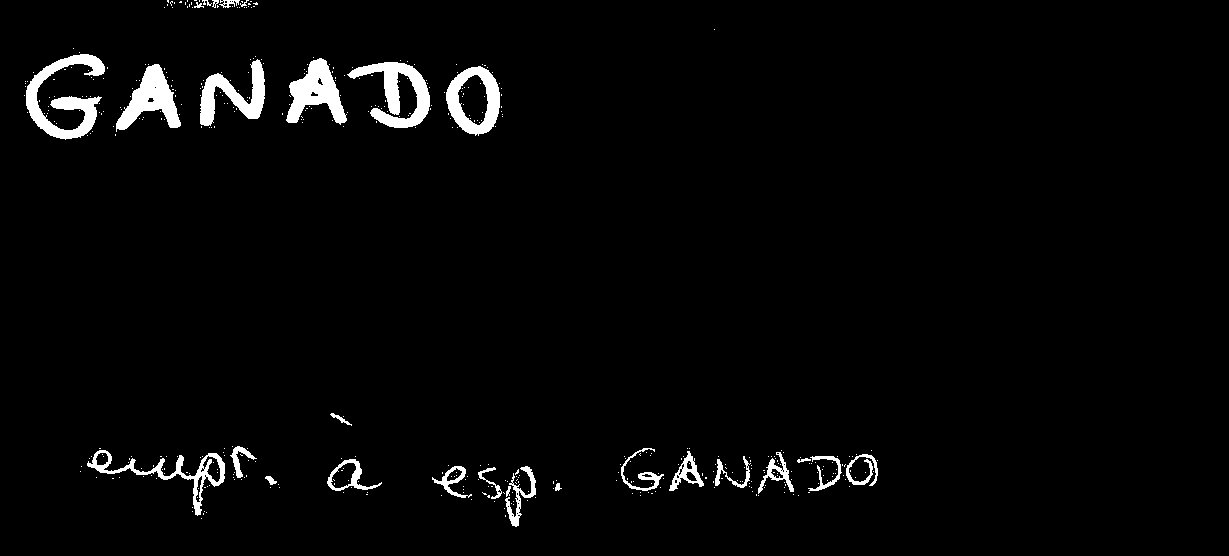 GANADO
empr. à esp. GANADO